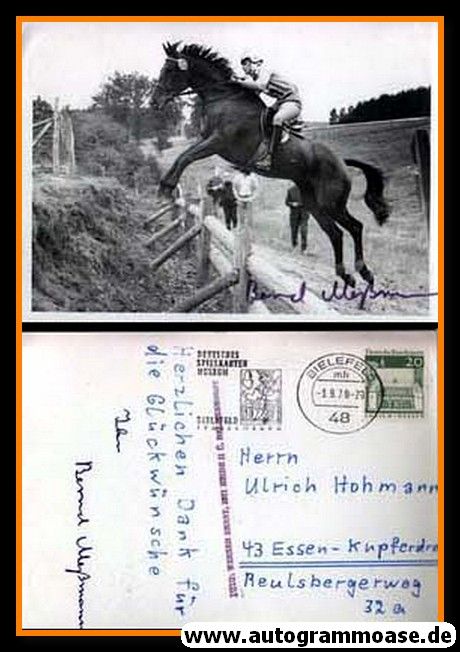 Bernd Meßmann
Herzlichen Dank für
die Glückwünsche
Ihr
Bernd Meßmann
DEUTSCHES
SPIELKARTEN
MUSEUM
BIELEFELD
BIELEFELD
mh
48
20
Herrn
Ulrich Hohmann
43 Essen-Kupferdre
Reulsbergerweg
32a
www.autogrammoase.de